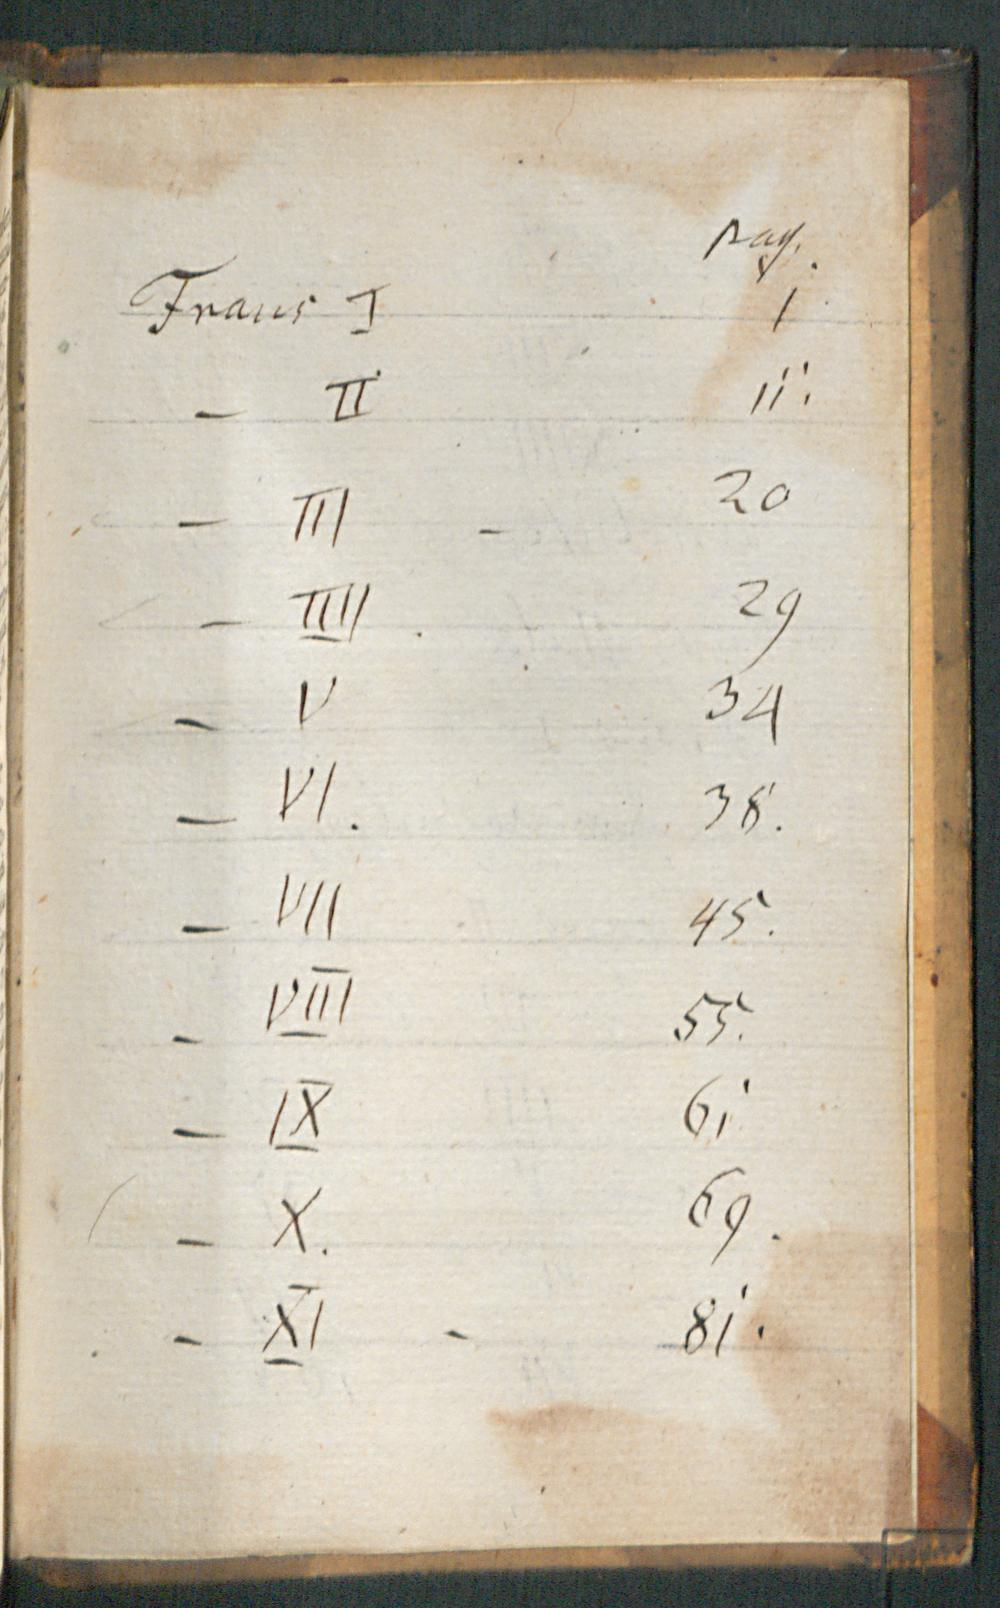 pag.
Fraus I 1
– II 11.
– III – 20
– IIII . 29
– V 34
– VI. 38.
– VII 45.
– VIII 55.
– IX 61
– X. 69.
– XI – 81.